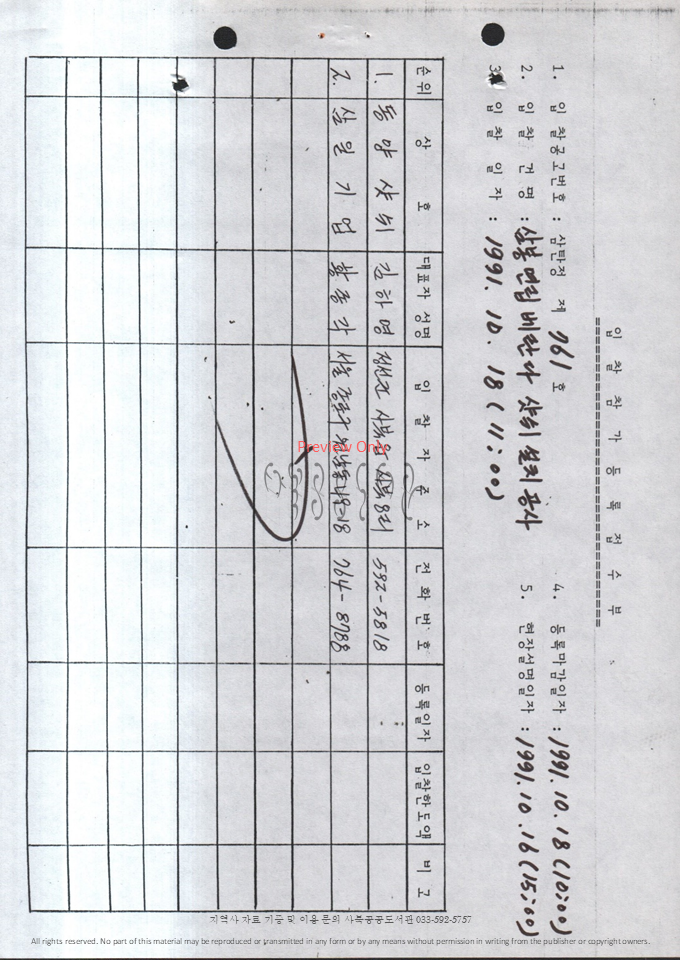 입찰참가등록접수부
1. 입찰공고번호 : 삼탄정 제 961 호
4. 등록마감일자 : 1991. 10. 18 (10:00)
2. 입찰건명 : 삼봉연립 베란다 샷쉬 설치공사
5. 현장설명일자 : 1991. 10. 16 (15:00)
3. 입찰일자 : 1991. 10. 18 (11:00)
순위 상호 대표자 성명 입찰자주소 전화번호 등록일자 입찰한도액 비고
1. 동양샷쉬 김하영 정선군 사북읍 사북8리 592-5818
2. 삼일기업 황종각 서울 종로구 764-8788
Preview Only
지역사 자료 기증 및 이용 문의 사북공공도서관 033-592-5757
All rights reserved. No part of this material may be reproduced or transmitted in any form or by any means without permission in writing from the publisher or copyright owners.